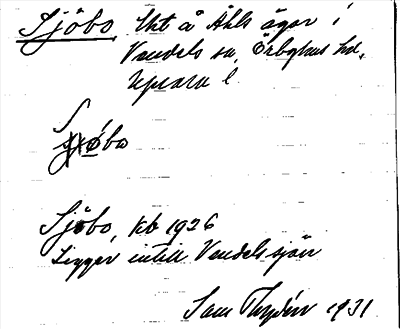 Sjöbo Lht å Åhls ägor i
Vendels sn, Örbyhus hd,
Uppsala l.
Sjöbo
Sjöbo, kb 1926
Ligger intill Vendelsjön
Sam Thydén 1931